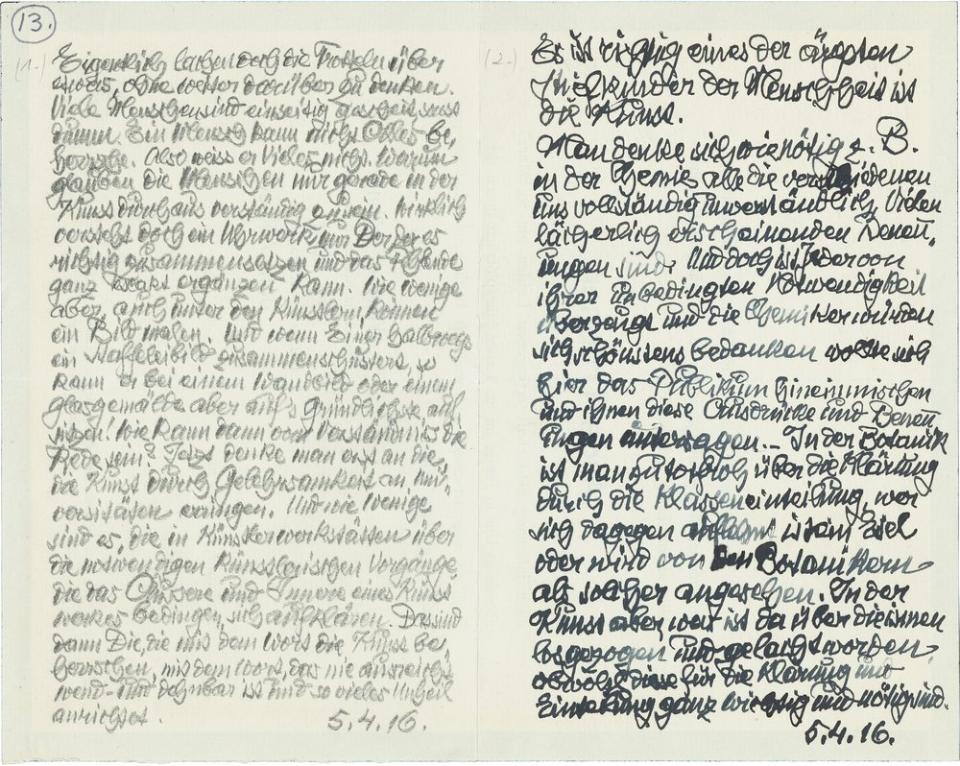 13.
(1.)
Eigentlich lachen doch die Trotteln über
etwas, ohne weiter darüber zu denken.
Viele Menschen sind einseitig gescheit sonst
dumm. Ein Mensch kann nicht Alles be,
herrsche. Also weiss er Vieles nicht. Warum
glauben die Menschen nur gerade in der
Kunst durchaus verständig zu sein. Wirklich
versteht doch ein Uhrwerk nur Der der es
richtig zusammensetzen und das Fehlende
ganz exakt ergänzen kann. Wie wenige
aber, auch unter den Künstlern können
ein Bild malen. Und wenn Einer halbwegs
ein Staffeleibild zusammenschustert, so
kann er bei einem Wandbild oder einem
Glasgemälde aber auf's Gründlichste auf,
sitzen! Wie kann dann vom Verständnis die
Rede sein? Jetzt denke man erst an die
die Kunst durch Gelehrsamkeit an Uni,
versitäten erringen. Und wie Wenige
sind es, die in Künstlerwerkstätten über
die notwendigen künstlerischen Vorgänge
die das Äussere und Innere eines Kunst
werkes bedingen, sich aufklären. Das sind
dann Die, die mit dem Wort die Kunst be,
herrschen, mit dem Wort, das nie ausreich,
end - und dehnbar ist und so vieles Unheil
anrichtet.
5.4.16.
(2.)
Es ist richtig eines der ärgsten
Stiefkinder der Menschheit ist
die Kunst.
Man denke sich wie nötig z. B.
in der Chemie alle die verschiedenen
uns vollständig unverständlich, Vielen
lächerlich erscheinenden Benen,
nungen sind. Und doch ist Jeder von
ihrer unbedingten Notwendigkeit
überzeugt und die Chemiker würden
sich schönstens bedanken wollte sich
hier das Publikum hineinmischen
und ihnen diese Ausdrücke und Benen
nungen untersagen. - In der Botanik
ist man
über die Klärung
durch die Klasseneinteilung, wer
sich dagegen auflehnt ist ein Esel
oder wird von den Botanikern
als solcher angesehen. In der
Kunst aber, was ist da über die ismen
losgezogen und gelacht worden,
obwohl diese für die Klärung und
Einteilung ganz wichtig und nötig sind.
5.4.16.